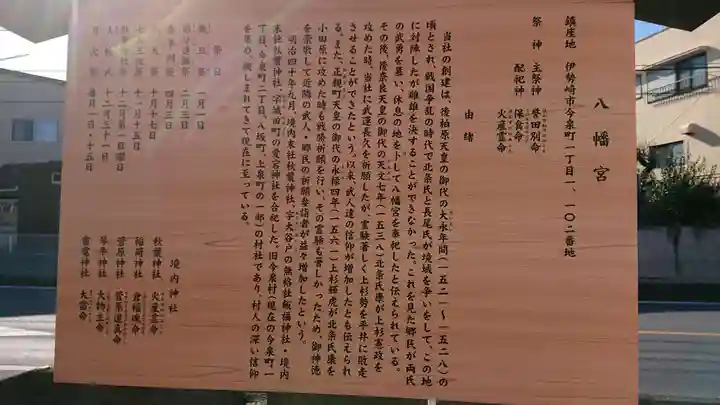 八幡宮
鎮座地 伊勢崎市今泉町一丁目一、一〇二番地
祭神 主祭神 誉田別命
配祀神 保食命
火産霊命
由緒
当社の創建は、後柏原天皇の御代の大永年間(一五二一~一五二八)の
頃とされ、戦国争乱の時代で北条氏と長尾氏が境域を争いをして、この地
に対陣したが雌雄を決することができなかった。これを見た郷民が両氏
の武勇を慕い、休息の地を卜して八幡宮を奉祀したと伝えられている。
その後、後奈良天皇の御代の天文七年(一五三八)北条氏康が上杉憲政を
攻めた時、当社に武運長久を祈願したが、霊験著しく上杉勢を平井に敗走
させることができたという。以来、武人達の信仰が増加したとも伝えられ
る。また、正親町天皇の御代の永禄四年(一五六一)上杉輝虎が北条氏康を
小田原に攻めた時も戦勝祈願を行い、その霊験も著しかったため、御神徳
を崇敬して近隣の武人・郷民の祈願参詣者が益々増加したという。
明治四十年九月、境内末社秋葉神社、字大谷戸の無格社飯福神社・境内
末社秋葉神社、字福田町の愛宕神社を合祀した。旧今泉村(現在の今泉町一
丁目、今泉町二丁目、八坂町、上泉町の一部)の村社であり、村人の深い信仰
を集め、親しまれてきて現在に至っている。
祭日
歳旦祭 一月一日
二月三日
春季例祭 四月三日
大祭 十月十七日
七五三祭 十一月十五日
十二月第一日曜日
大祓式 十二月三十一日
月次祭 毎月一日・十五日
境内神社
秋葉神社 火産霊命
稲荷神社 倉稲魂命
菅原神社 菅原道真命
琴平神社 大物主命
雷電神社 大雷命